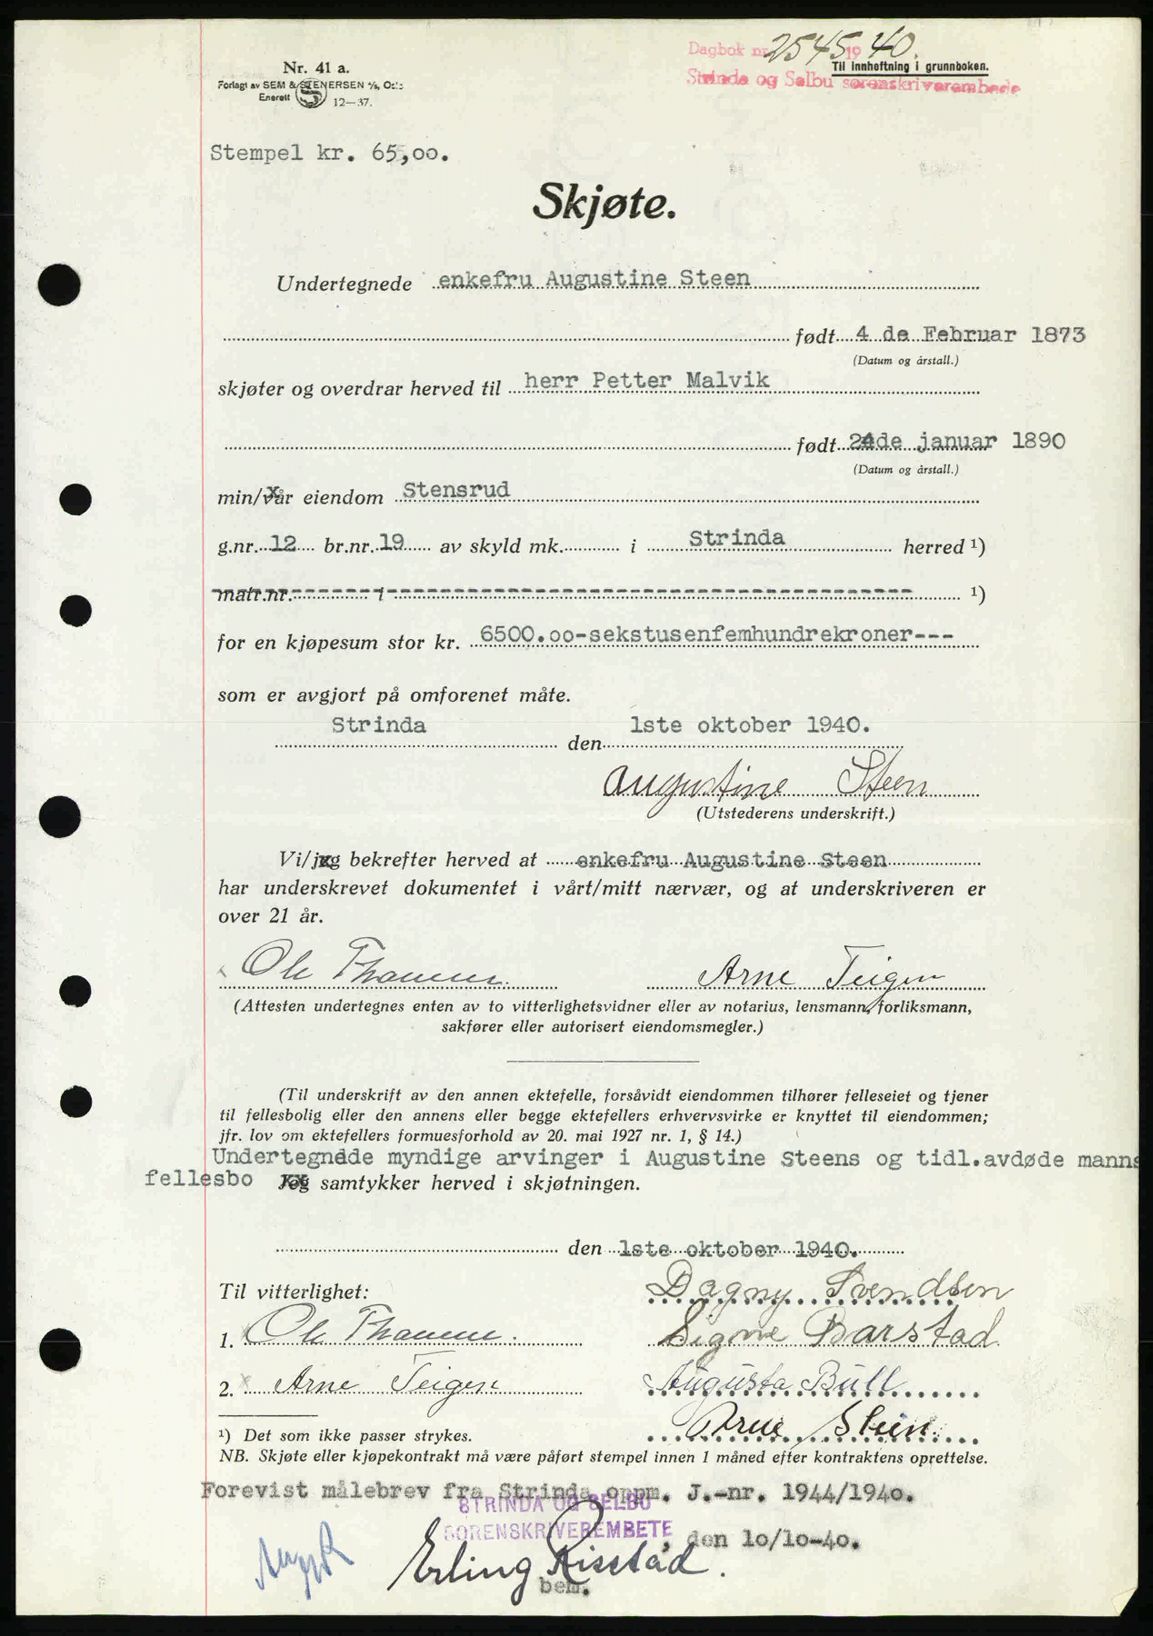 Dagbok nr. 2545 19 40.
Nr. 41 a.
Til innheftning i grunnboken.
Forlagt av SEM & STENERSEN A/S, Oslo
Strinda og Selbu sorenskriverembede
Enerett S 12—37.
Stempel kr. 65,oo.
Skjøte.
Undertegnede enkefru Augustine Steen
født 4 de Februar 1873
(Datum og årstall.)
skjøter og overdrar herved til herr Petter Malvik
født 24de januar 1890
(Datum og årstall.)
min/vår eiendom Stensrud
g.nr. 12 br.nr. 19 av skyld mk. i Strinda herred ¹)
matr.nr. i ¹)
for en kjøpesum stor kr. 6500.oo-sekstusenfemhundrekroner---
som er avgjort på omforenet måte.
Strinda den 1ste oktober 1940.
Augustine Steen
(Utstederens underskrift.)
Vi/jeg bekrefter herved at enkefru Augustine Steen
har underskrevet dokumentet i vårt/mitt nærvær, og at underskriveren er
over 21 år.
Ole Arne Teigen
(Attesten undertegnes enten av to vitterlighetsvidner eller av notarius, lensmann, forliksmann,
sakfører eller autorisert eiendomsmegler.)
(Til underskrift av den annen ektefelle, forsåvidt eiendommen tilhører felleseiet og tjener
til fellesbolig eller den annens eller begge ektefellers erhvervsvirke er knyttet til eiendommen;
jfr. lov om ektefellers formuesforhold av 20. mai 1927 nr. 1, § 14.)
Undertegnede myndige arvinger i Augustine Steens og tidl.avdøde manns
fellesbo Jeg samtykker herved i skjøtningen.
den 1ste oktober 1940.
Til vitterlighet: Dagny Svendsen
1. Ole Signe Barstad
2. Arne Teigen Augusta Bull
Arne Steen.
¹) Det som ikke passer strykes.
NB. Skjøte eller kjøpekontrakt må være påført stempel innen 1 måned efter kontraktens oprettelse.
Forevist målebrev fra Strinda oppm. J.-nr. 1944/1940.
STRINDA OG SELBU
SORENSKRIVEREMBETE, den 10/10-40.
Erling Risstad.
bem.